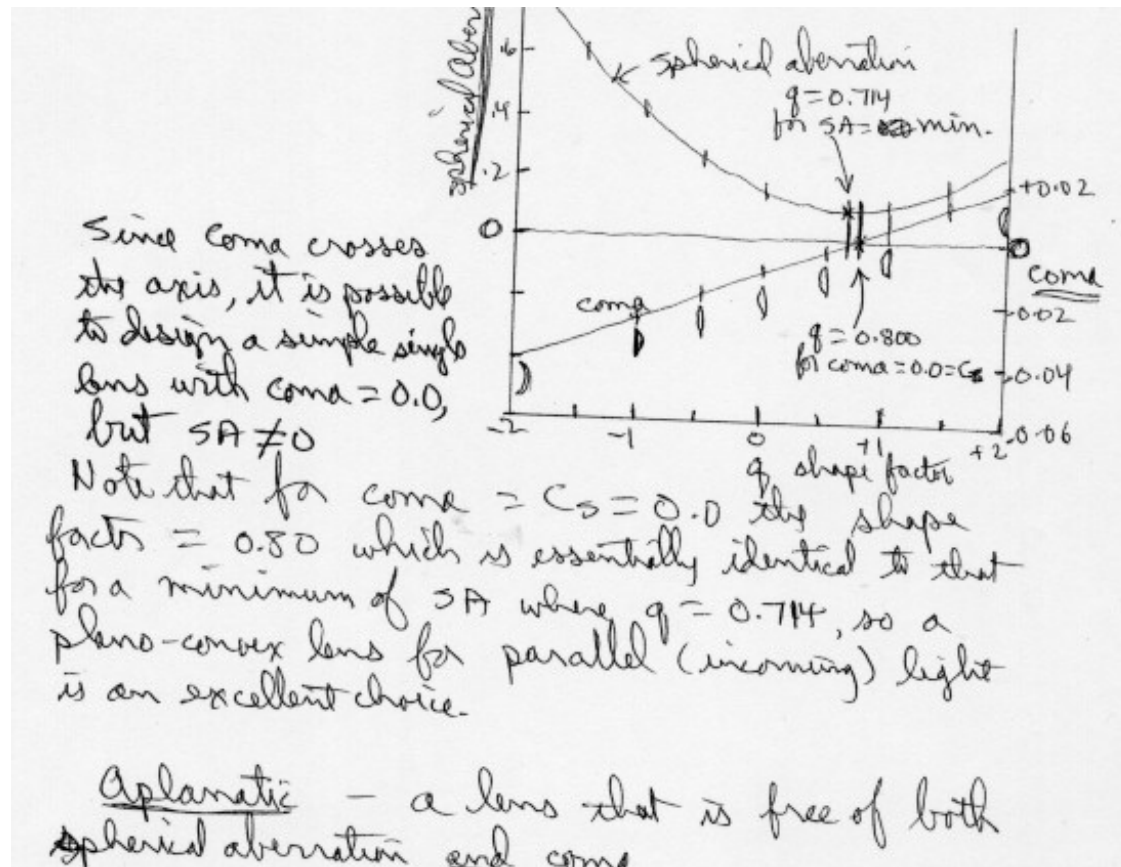 spherical Aber
.6
.4
.2
0
spherical aberration
q = 0.714
for SA = min.
+0.02
0
coma
-0.02
-0.04
-0.06
coma
q = 0.800
for coma = 0.0 = Cs
-2 -1 0 +1 +2
q shape factor
Since coma crosses
the axis, it is possible
to design a simple single
lens with coma = 0.0,
but SA ≠ 0
Note that for coma = Cs = 0.0 the shape
factor = 0.80 which is essentially identical to that
for a minimum of SA where q = 0.714, so a
plano-convex lens for parallel (incoming) light
is an excellent choice.
Aplanatic - a lens that is free of both
spherical aberration and coma